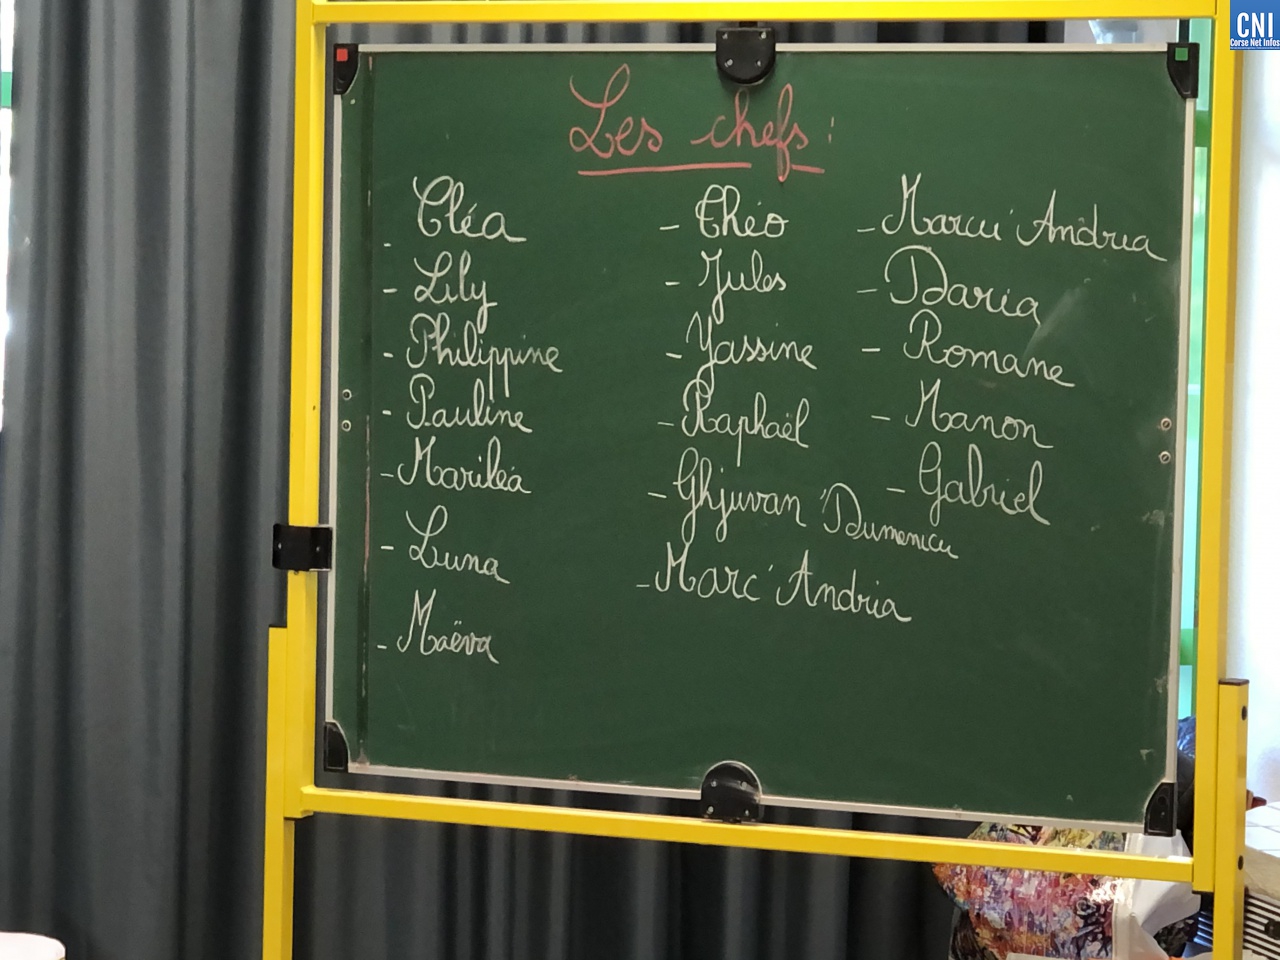 Les chefs :
- Cléa
- Lily
- Philippine
- Pauline
- Mariléa
- Luna
- Maëva
- Théo
- Jules
- Yassine
- Raphaël
- Ghjuvan 'Dumenicu
- Marc'Andria
- Marcu'Andria
- Daria
- Romane
- Manon
- Gabriel
CNI
Corse Net Infos